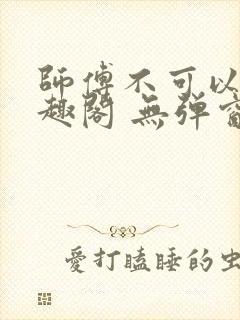 師傅不可以
趣閣 無彈窗
愛打瞌睡的虫